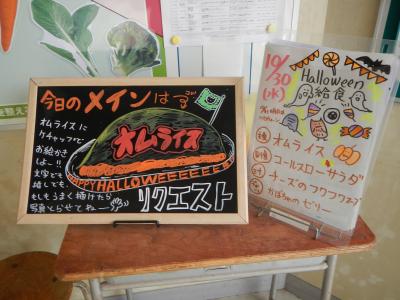 今日のメインは
オムライスに
ケチャップで
お絵かき
しよー!!
文字でも
絵でも、
もしもうまく描けたら
写真とらせてねー
オムライス
HAPPY HALLOWEEEEEEEN
リクエスト
10/30
(水)
Halloween
給食
オムライス
コールスローサラダ
チーズのフワフワスープ
かぼちゃのゼリー